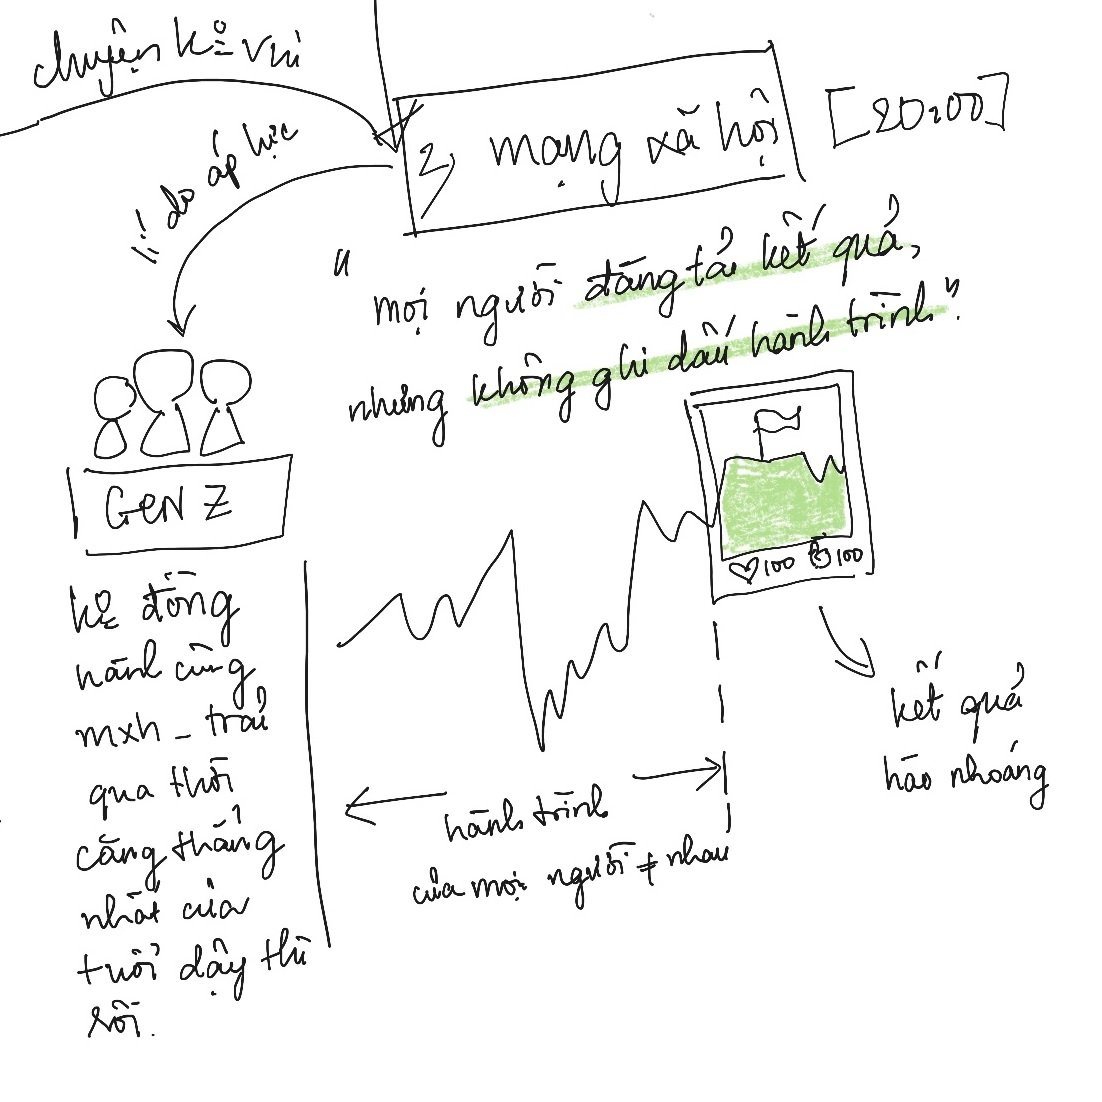 chuyện kể vui
lí do áp lực
2, mạng xã hội
[20:00]
"mọi người đăng tải kết quả,
nhưng không ghi dấu hành trình".
GEN Z
kẻ đồng
hành cùng
mxh _ trải
qua thời
căng thẳng
nhất của
tuổi dậy thì
rồi.
100 100
kết quả
hào nhoáng
hành trình
của mọi người ≠ nhau